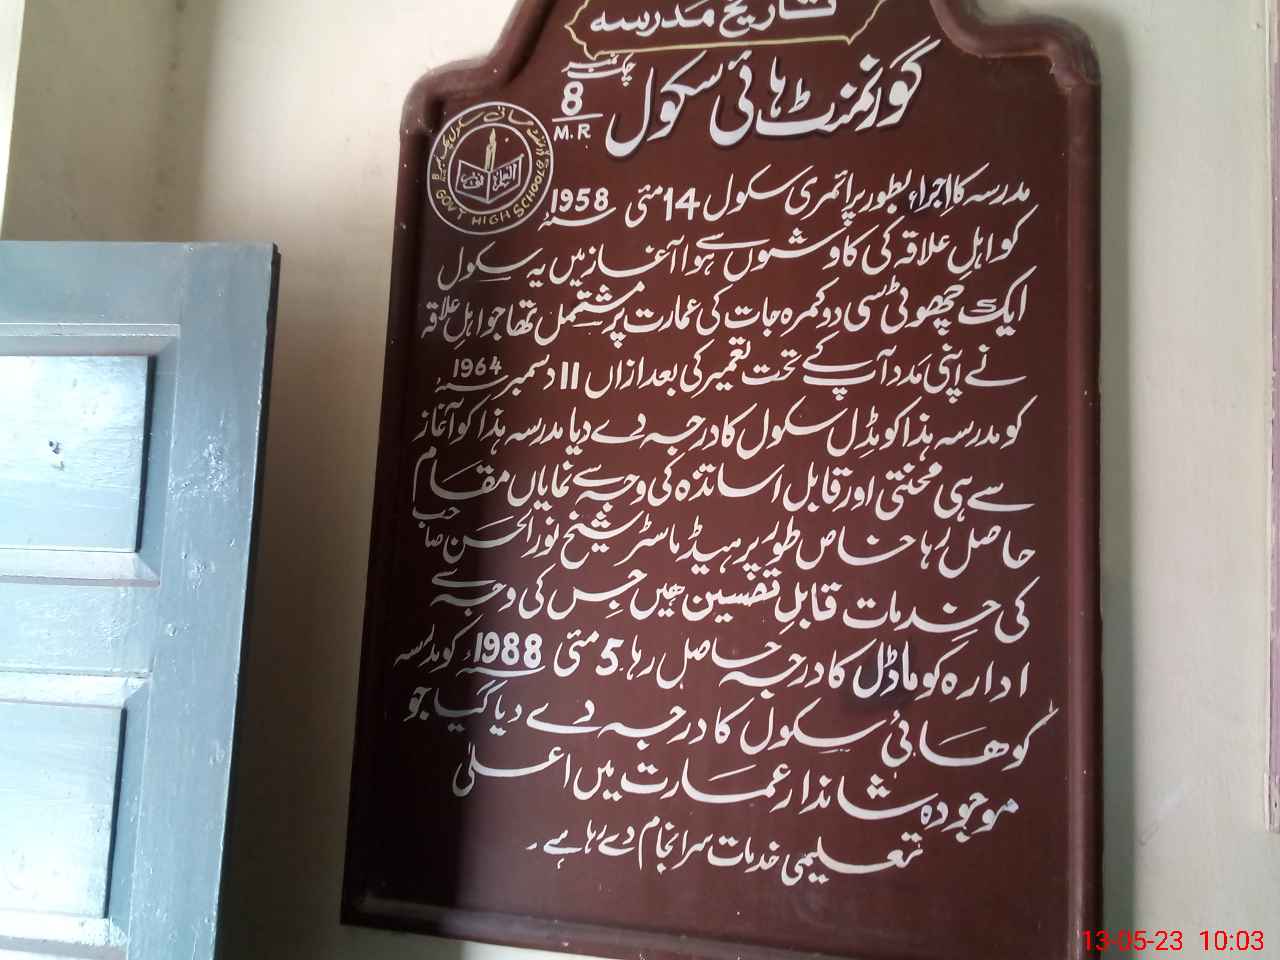 تاریخ مدرسہ
گورنمنٹ ہائی سکول چک نمبر 8 M.R
GOVT HIGH SCHOOL
مدرسہ کا اجراء بطور پرائمری سکول 14 مئی 1958
کو اہلِ علاقہ کی کاوشوں سے ہوا آغاز میں یہ سکول
ایک چھوٹی سی دو کمرہ جات کی عمارت پر مشتمل تھا جو اہلِ علاقہ
نے اپنی مدد آپ کے تحت تعمیر کی بعد ازاں 11 دسمبر 1964
کو مدرسہ ہذا کو مڈل سکول کا درجہ دے دیا مدرسہ ہذا کو آغاز
سے ہی محنتی اور قابل اساتذہ کی وجہ سے نمایاں مقام
حاصل رہا خاص طور پر ہیڈ ماسٹر شیخ نور الحسن صاحب
کی خدمات قابلِ تضسین ھیں جِس کی وجہ سے
ادارہ کو ماڈل کا درجہ حاصل رہا 5 مئی 1988ء کو مدرسہ
کو ھائی سکول کا درجہ دے دیا گیا جو
موجودہ شاندار عمارت میں اعلیٰ
تعلیمی خدمات سر انجام دے رہا ہے ۔
13-05-23 10:03